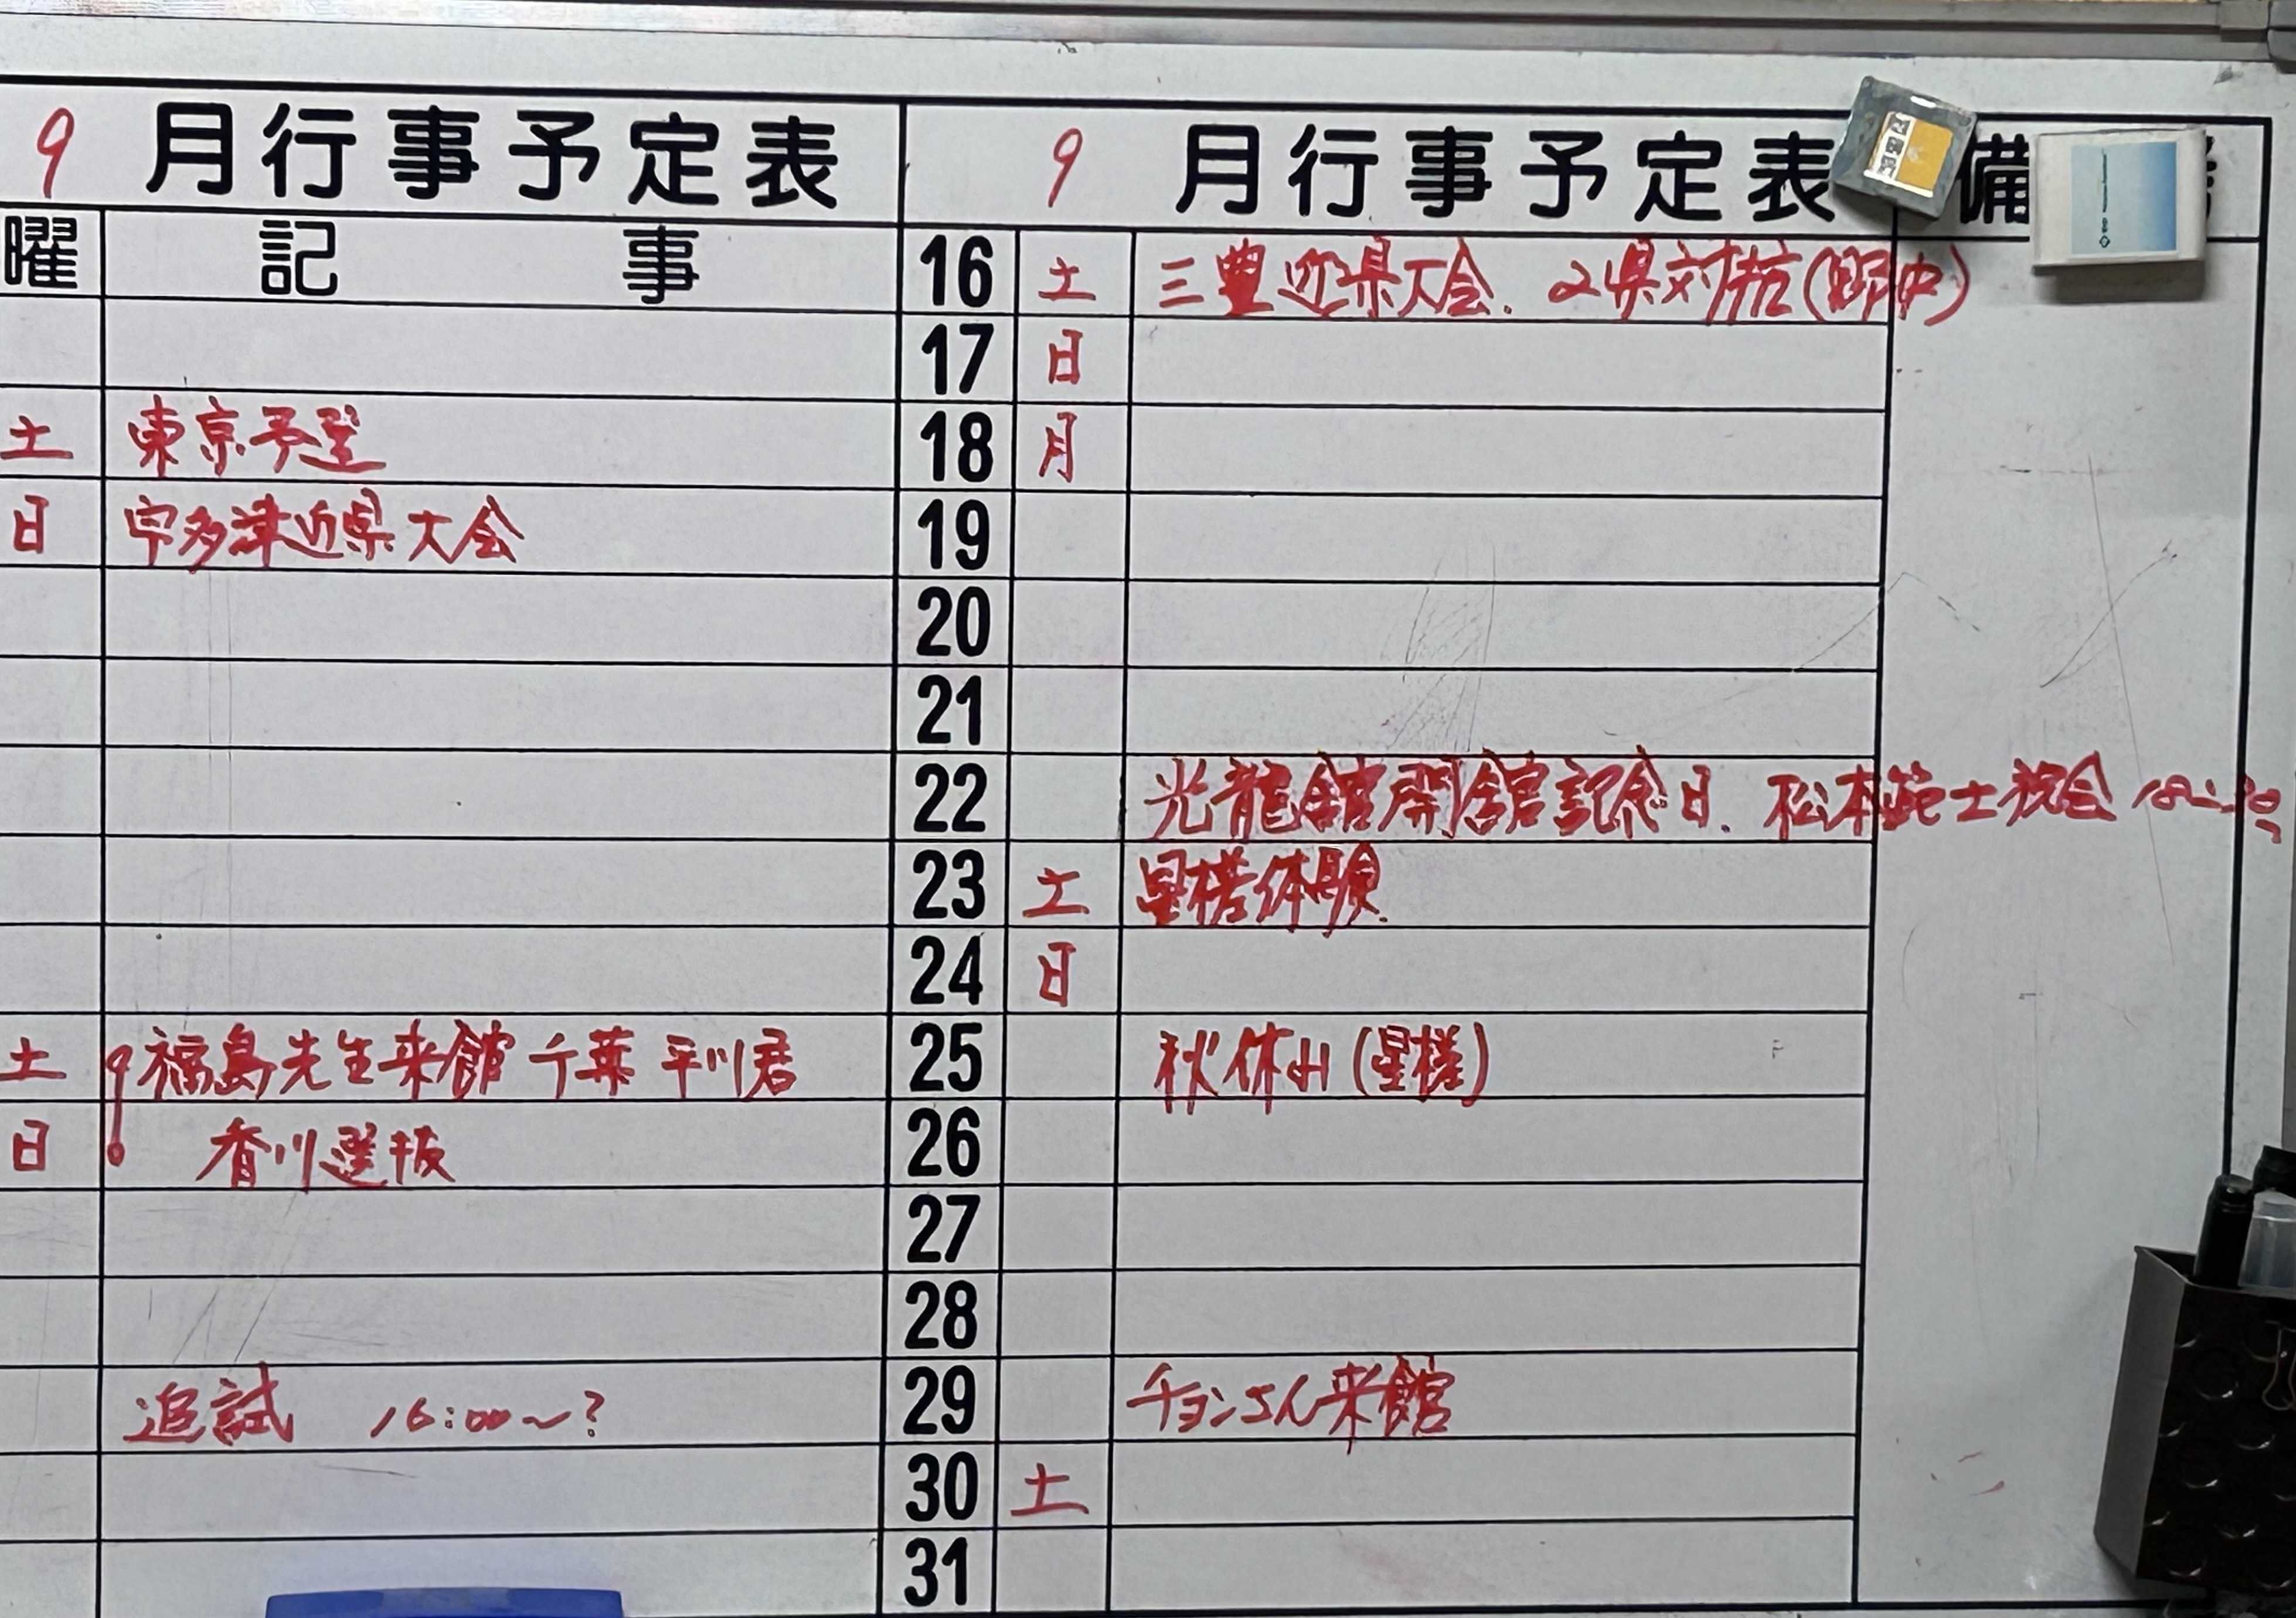 9 月行事予定表
曜 記事
土 東京予選
日 宇多津近県大会
土 福島先生来館 千葉 平川君
日 香川選抜
追試 16:00〜?
9 月行事予定表 備
16 土 三豊近県大会. 2県対抗(
17 日
18 月
19
20
21
22 光龍館開館記念日. 松本範士祝会
23 土 星槎体験.
24 日
25 秋休み(星槎)
26
27
28
29 チョンさん来館
30 土
31